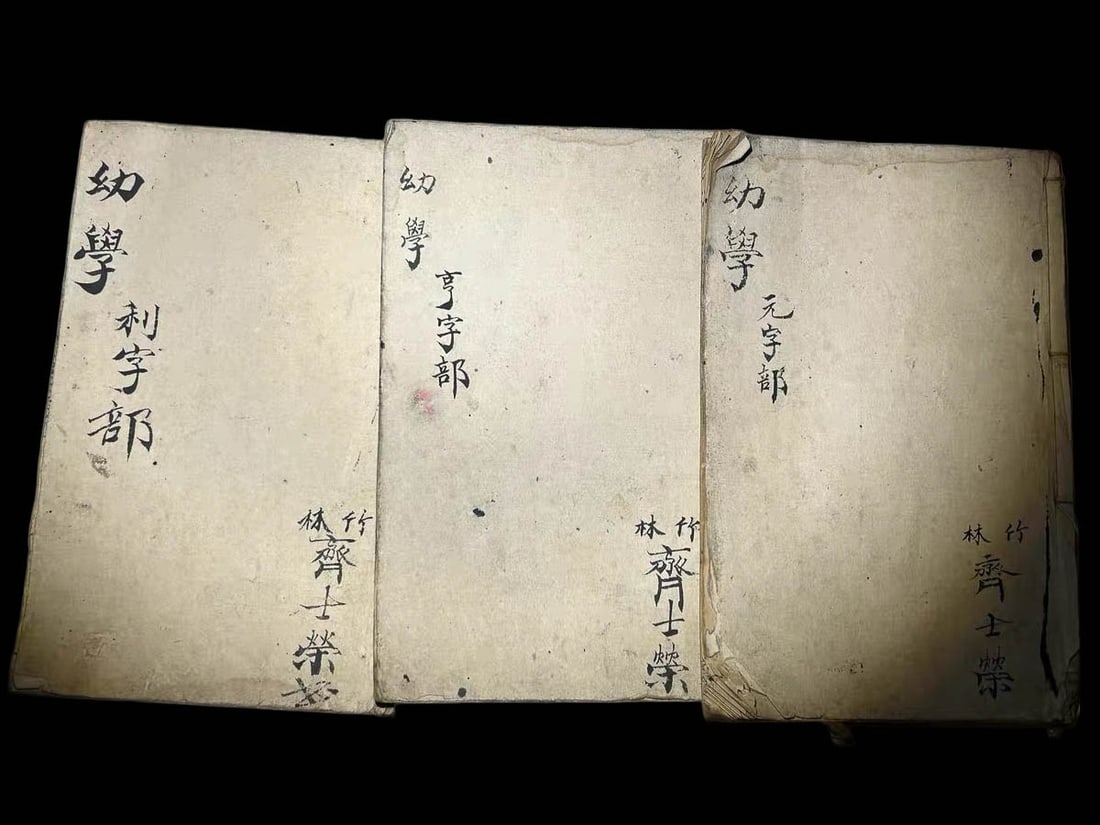 幼學
元字部
竹林
齊士榮
幼學
亨字部
竹林
齊士榮
幼學
利字部
竹林
齊士榮